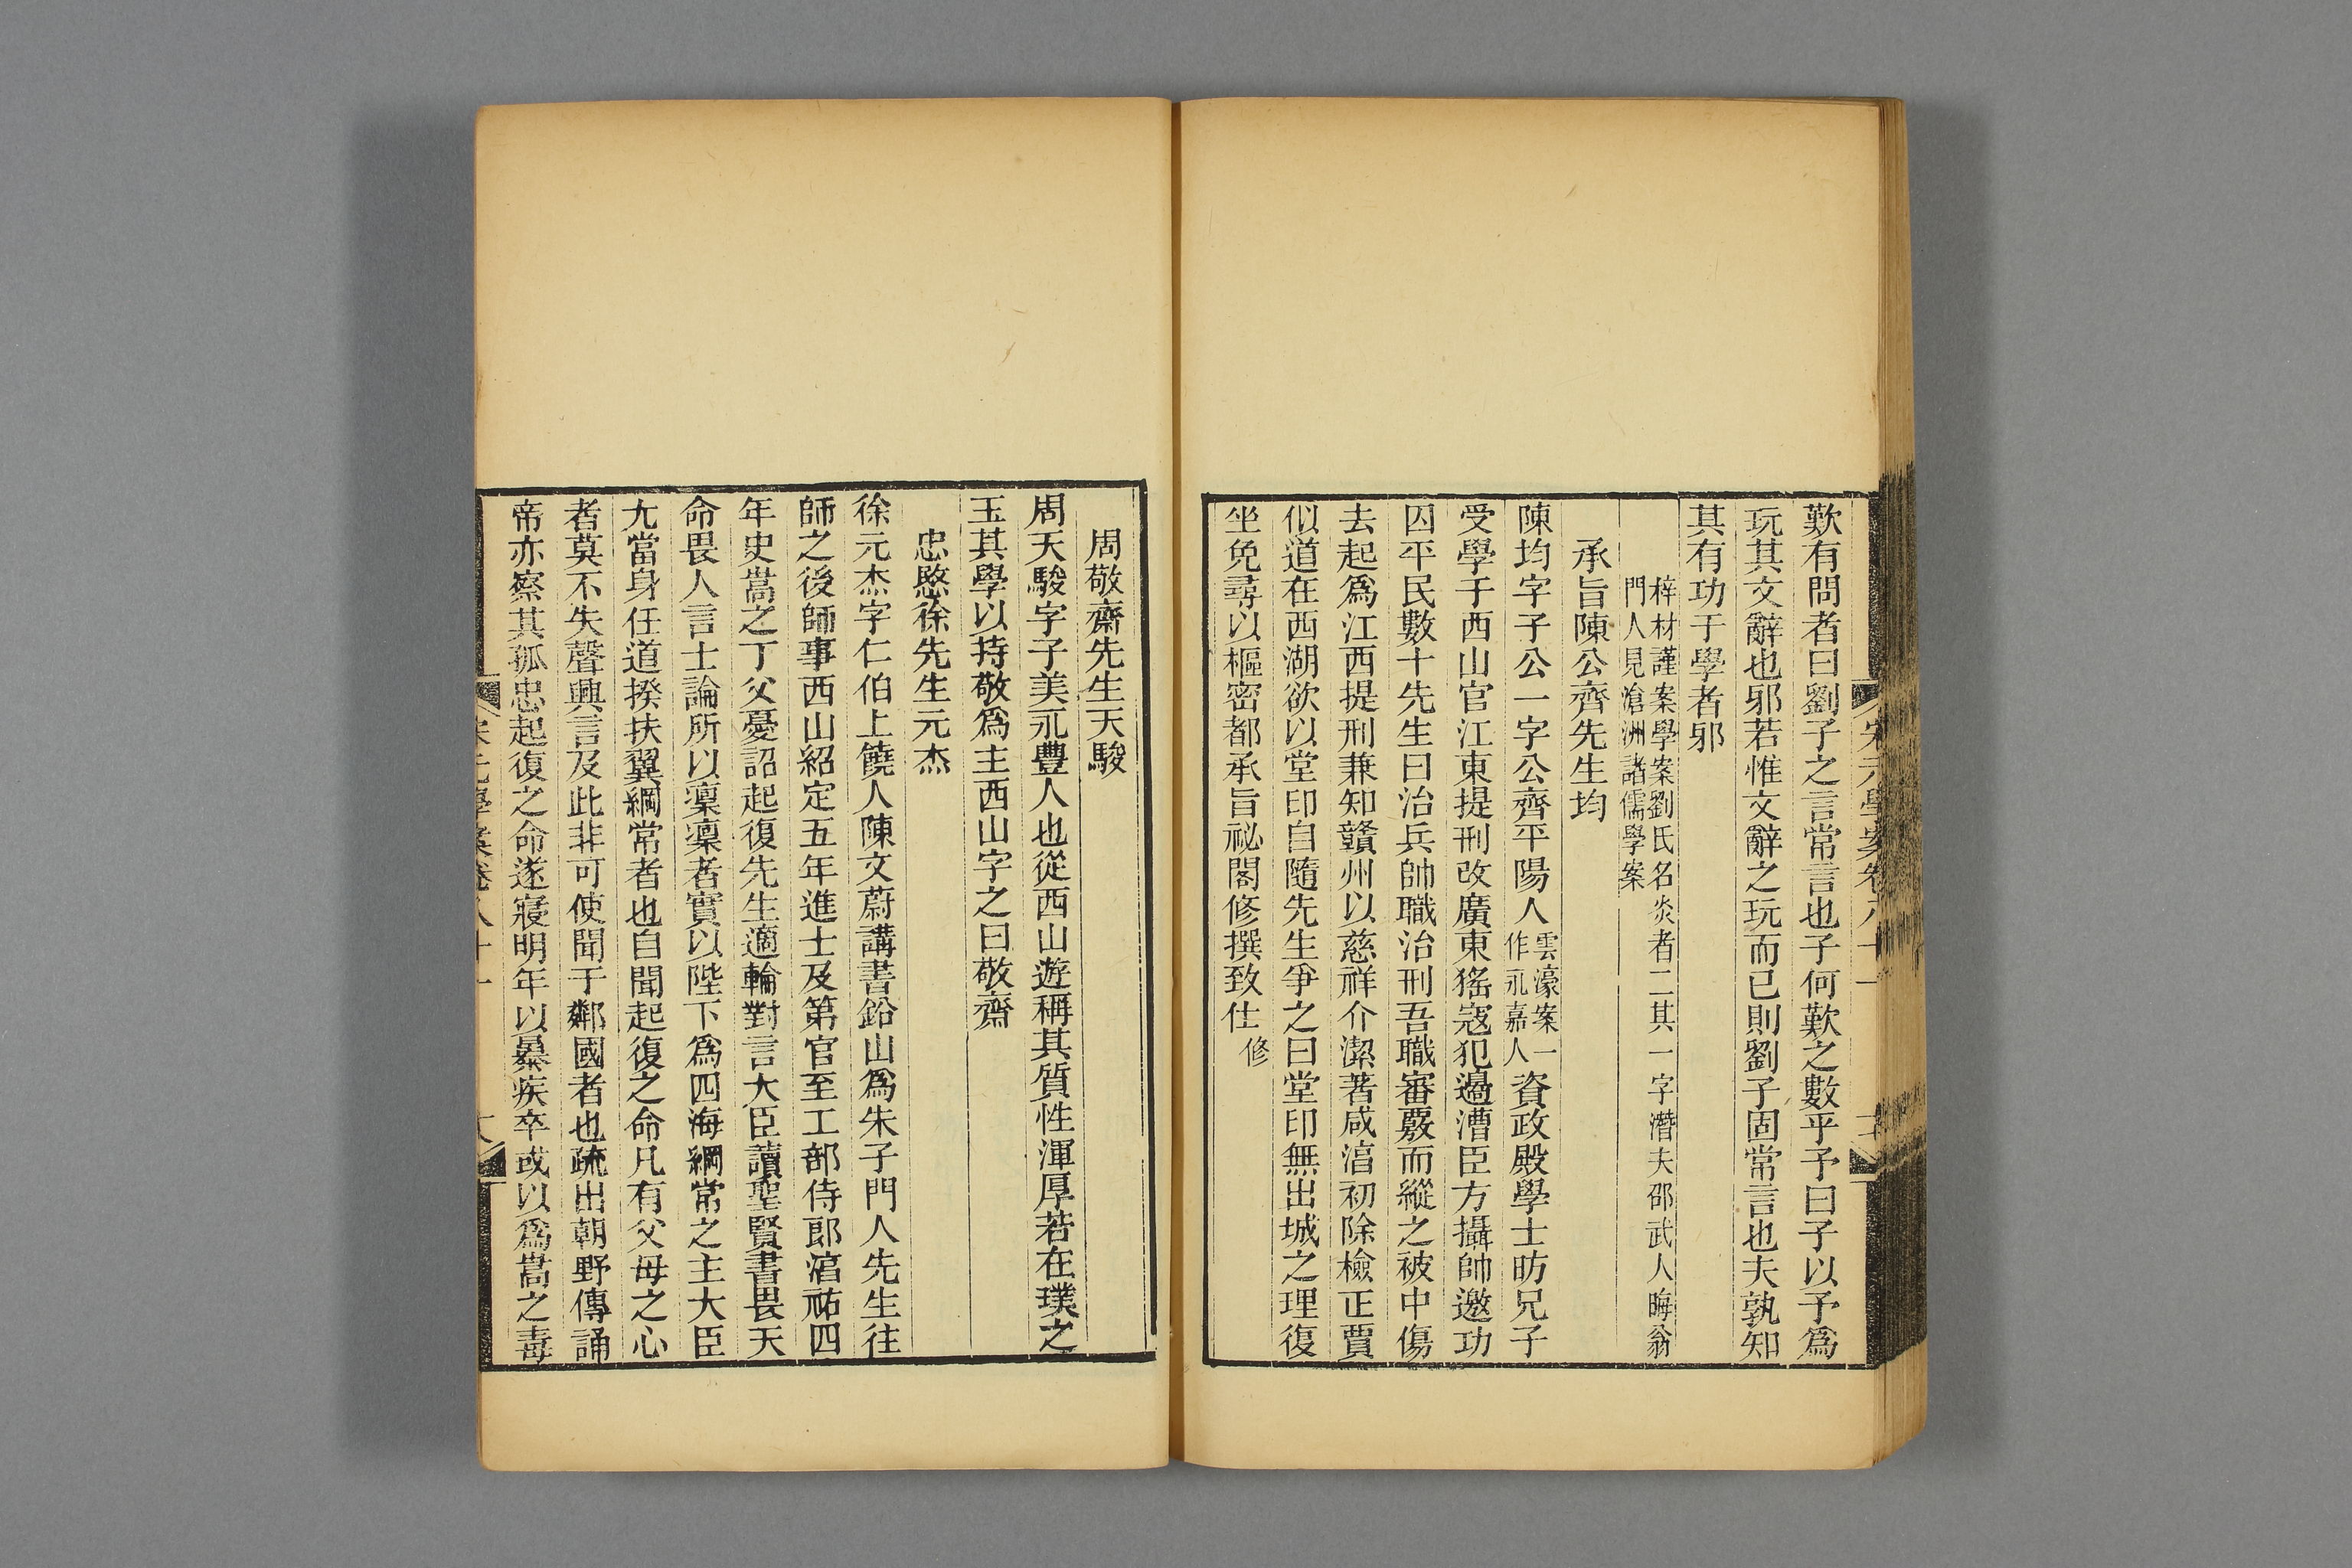 歎有問者曰劉子之言常言也子何歎之數乎予曰子以予爲
玩其文辭也邪若惟文辭之玩而已則劉子固常言也夫孰知
其有功于學者邪
梓材謹案學案劉氏名炎者二其一字潛夫邵武人晦翁
門人見滄洲諸儒學案
承旨陳公齊先生均
陳均字子公一字公齊平陽人雲濠案一作永嘉人資政殿學士昉兄子
受學于西山官江東提刑改廣東猺寇犯邊漕臣方攝帥邀功
囚平民數十先生曰治兵帥職治刑吾職審覈而縱之被中傷
去起爲江西提刑兼知贛州以慈祥介潔著咸淳初除檢正賈
似道在西湖欲以堂印自隨先生爭之曰堂印無出城之理復
坐免尋以樞密都承旨祕閣修撰致仕修
周敬齋先生天駿
周天駿字子美永豐人也從西山遊稱其質性渾厚若在璞之
玉其學以持敬爲主西山字之曰敬齋
忠愍徐先生元杰
徐元杰字仁伯上饒人陳文蔚講書鉛山爲朱子門人先生往
師之後師事西山紹定五年進士及第官至工部侍郎淳祐四
年史嵩之丁父憂詔起復先生適輪對言大臣讀聖賢書畏天
命畏人言士論所以凜凜者實以陛下爲四海綱常之主大臣
尢當身任道揆扶翼綱常者也自聞起復之命凡有父母之心
者莫不失聲興言及此非可使聞于鄰國者也疏出朝野傳誦
帝亦察其孤忠起復之命遂寢明年以暴疾卒或以爲嵩之毒
宋元學案卷八十一